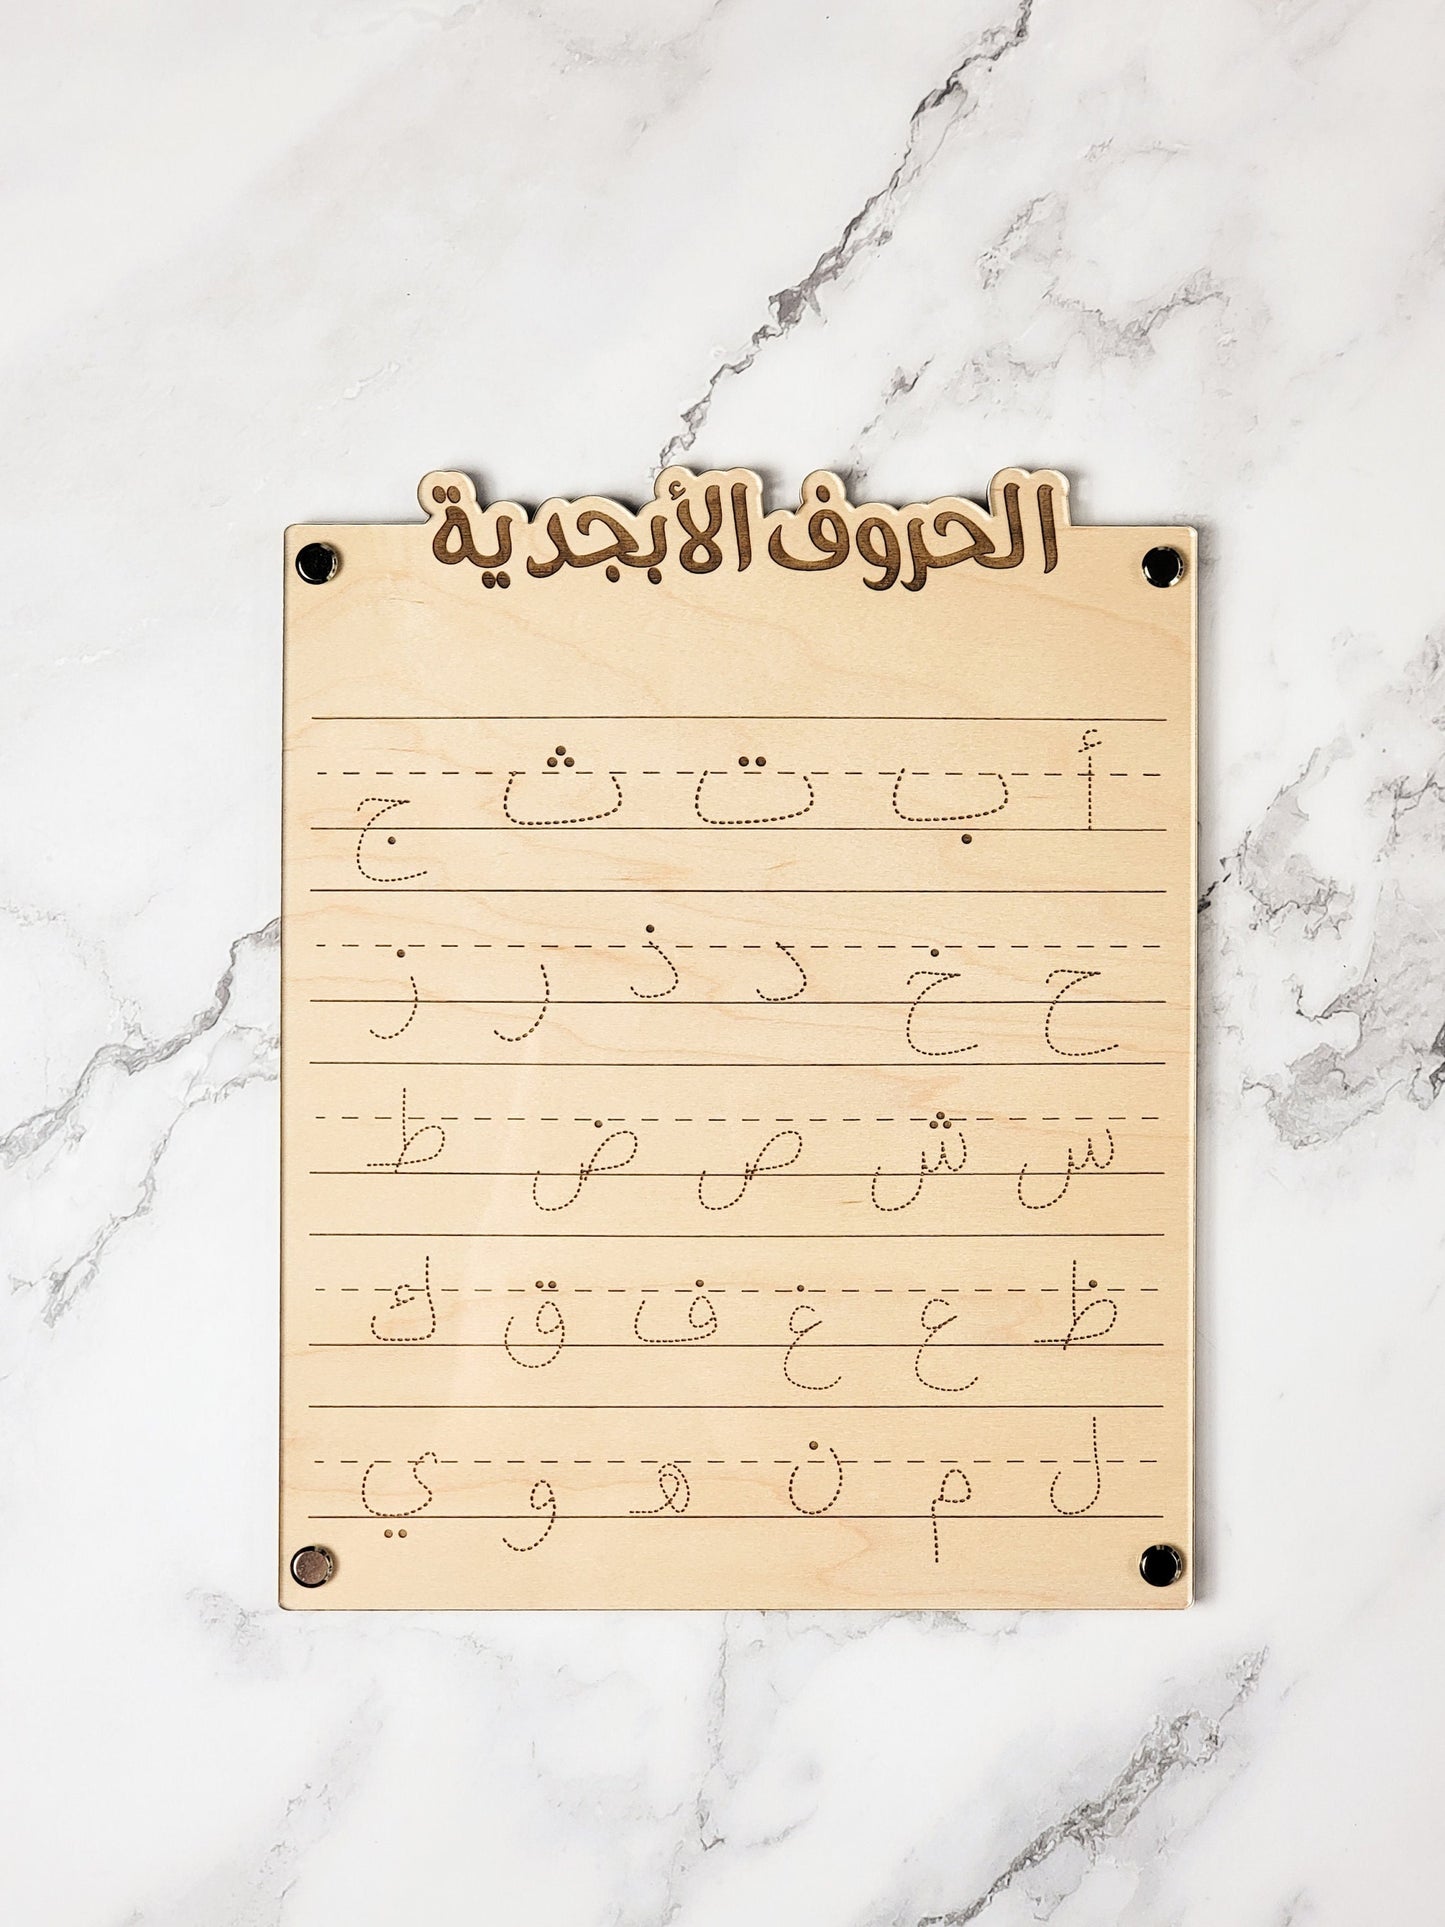 الحروف الأبجدية
أ ب ت ث ج
ح خ د ذ ر ز
س ش ص ض ط
ظ ع غ ف ق ك
ل م ن ه و ي